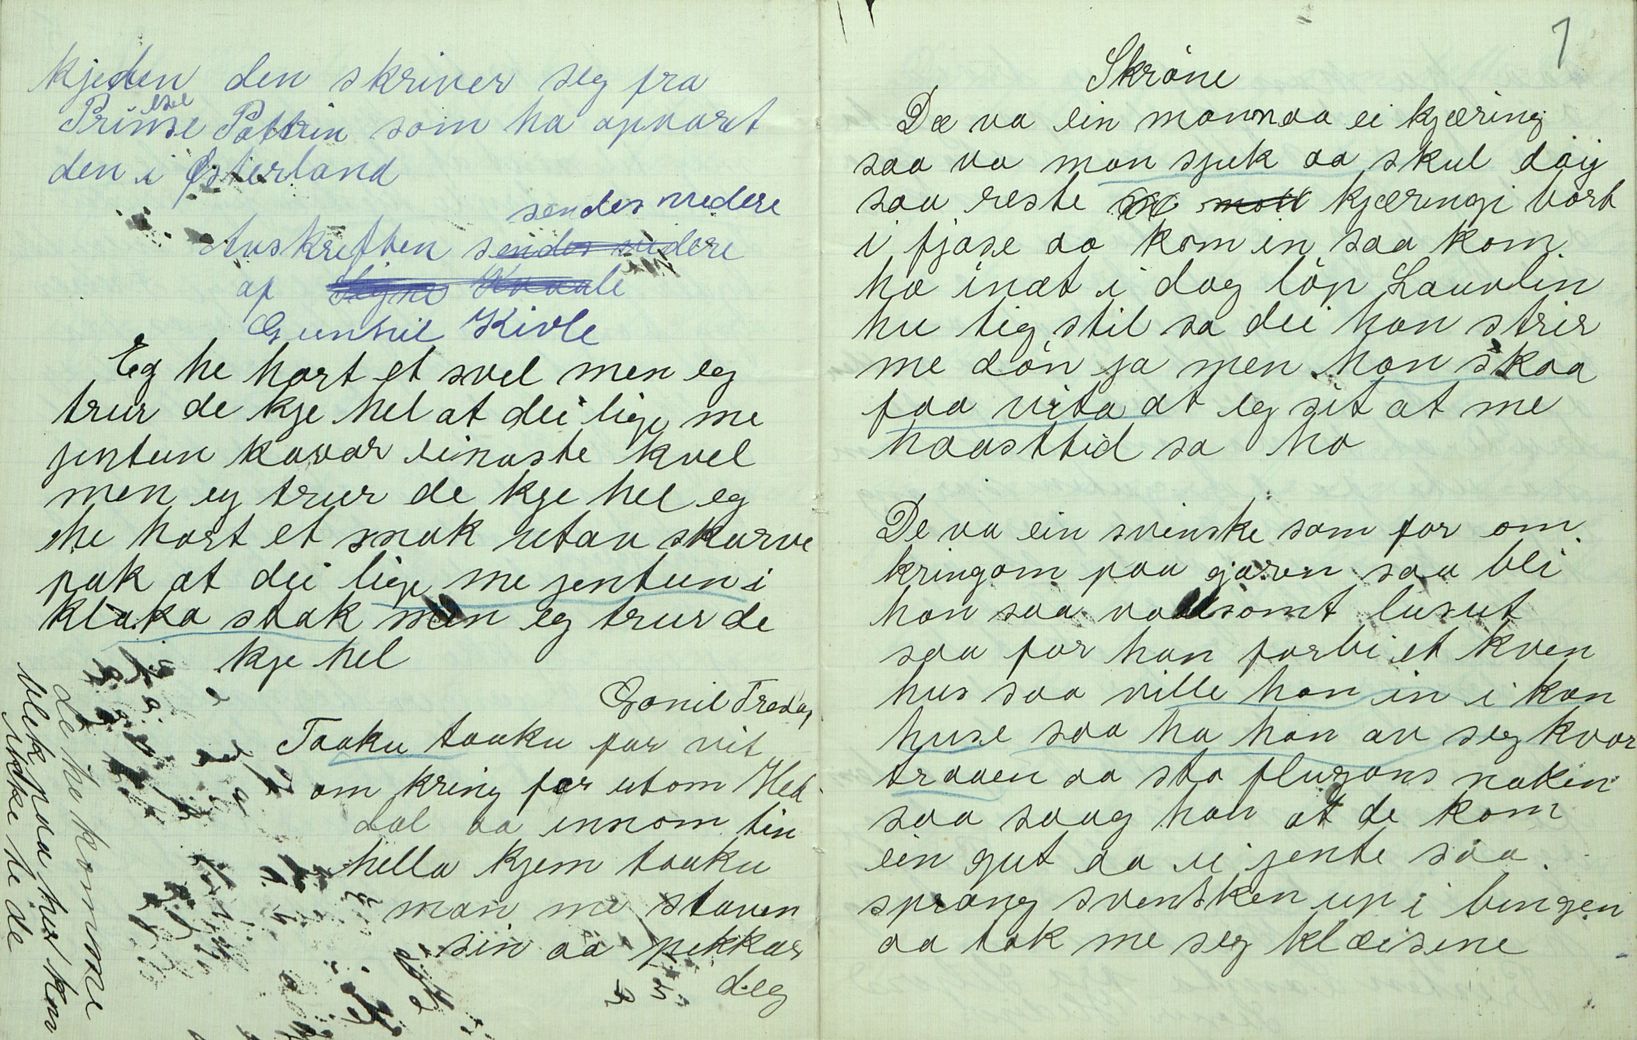 kjeden den skriver seg fra
Prinsesse Pattrin som ha opvaret
den i Østerland
sendes videre
Avskreften sendes videre
af Kvaale
Gunhil Kivle
Eg he hørt et svel men eg
trur de kje hel at dei lige me
jentun kavar einaste kvel
men eg trur de kje hel eg
he hort et snak utav skarve
pak at dei lige me jentun i
klaka stak men eg trur de
kje hel
Gonil Traday
Taaku taaku far vit
om kring for utom Hed
dal aa innom tin
hella kjem taaku
man me staven
sin aa pekkar
deg
de he komme
blek paa her kan
ikke he de
7
Skrøne
De va ein mannaa ei kjæring
saa va man sjuk aa skul døij
saa reste kjæringi bort
i fjøse aa kom in saa kom
ho inat i dag løp Lauvlin
hu tig stil sa dei han strir
me døn ja men han skaa
faa vita at eg git at me
haasttid sa ho
De va ein svenske som for om
kringom paa garen saa bli
han saa voldsomt lusut
saa for han forbi et kven
hus saa ville han in i kvn
huse saa ha han av seg kvor
traaen aa sto flugans naken
saa saag han at de kom
ein gut aa ei jente saa
sprang svensken up i bingen
aa tok me seg klæisene